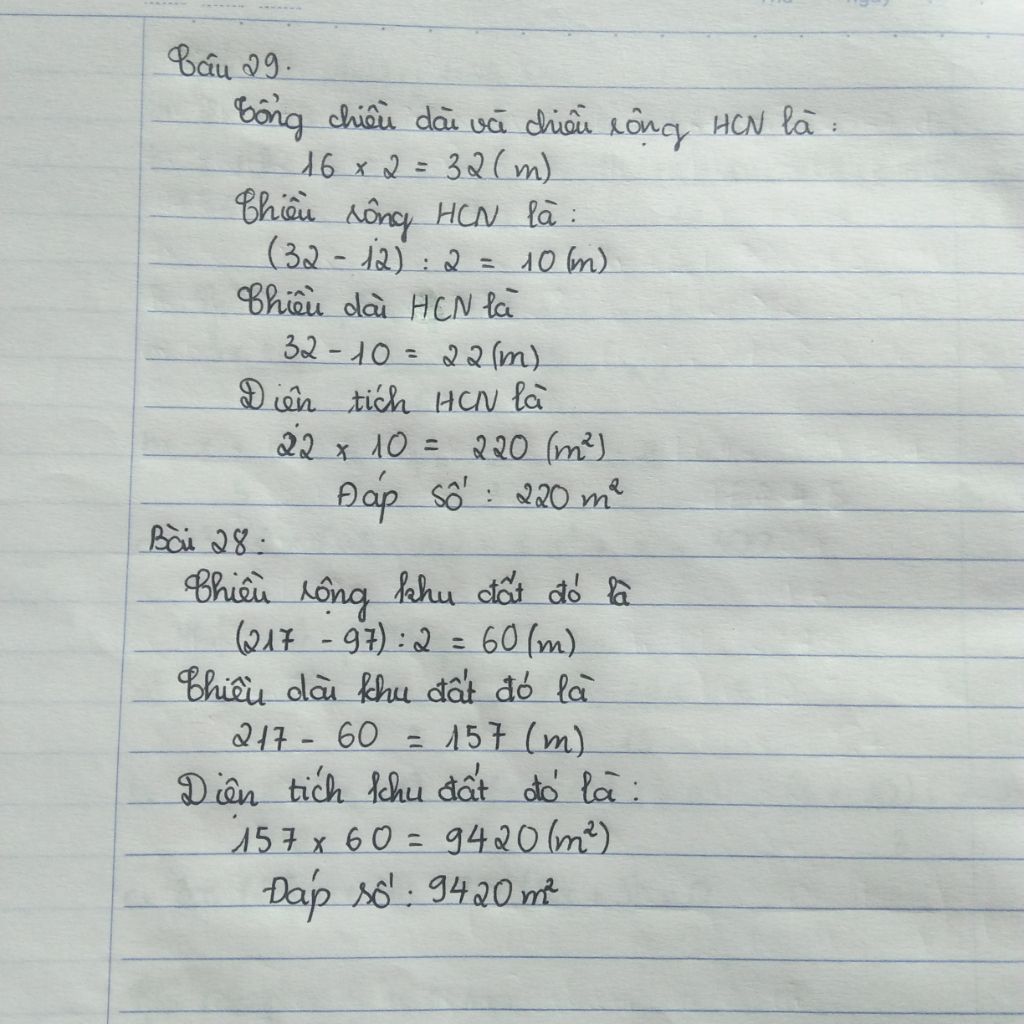 Câu 29.
Tổng chiều dài và chiều rộng HCN là :
16 x 2 = 32 (m)
Chiều rộng HCN là :
(32 - 12) : 2 = 10 (m)
Chiều dài HCN là
32 - 10 = 22 (m)
Diện tích HCN là
22 x 10 = 220 (m²)
Đáp số : 220 m²
Bài 28 :
Chiều rộng khu đất đó là
(217 - 97) : 2 = 60 (m)
Chiều dài khu đất đó là
217 - 60 = 157 (m)
Diện tích khu đất đó là :
157 x 60 = 9420 (m²)
Đáp số : 9420 m²